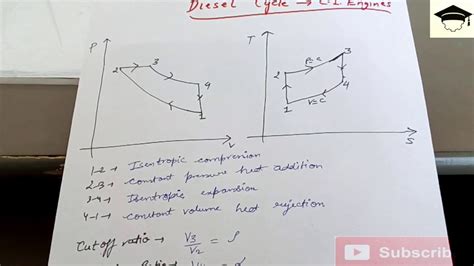 Diesel Cycle → C.I. Engines
P
2
3
4
1
V
T
3
P=c
2
4
1
V=C
S
1-2 → Isentropic compression
2-3 → constant pressure heat addition
3-4 → Isentropic expansion
4-1 → constant volume heat rejection
Cutoff ratio → V3/V2 = ρ
Subscrib